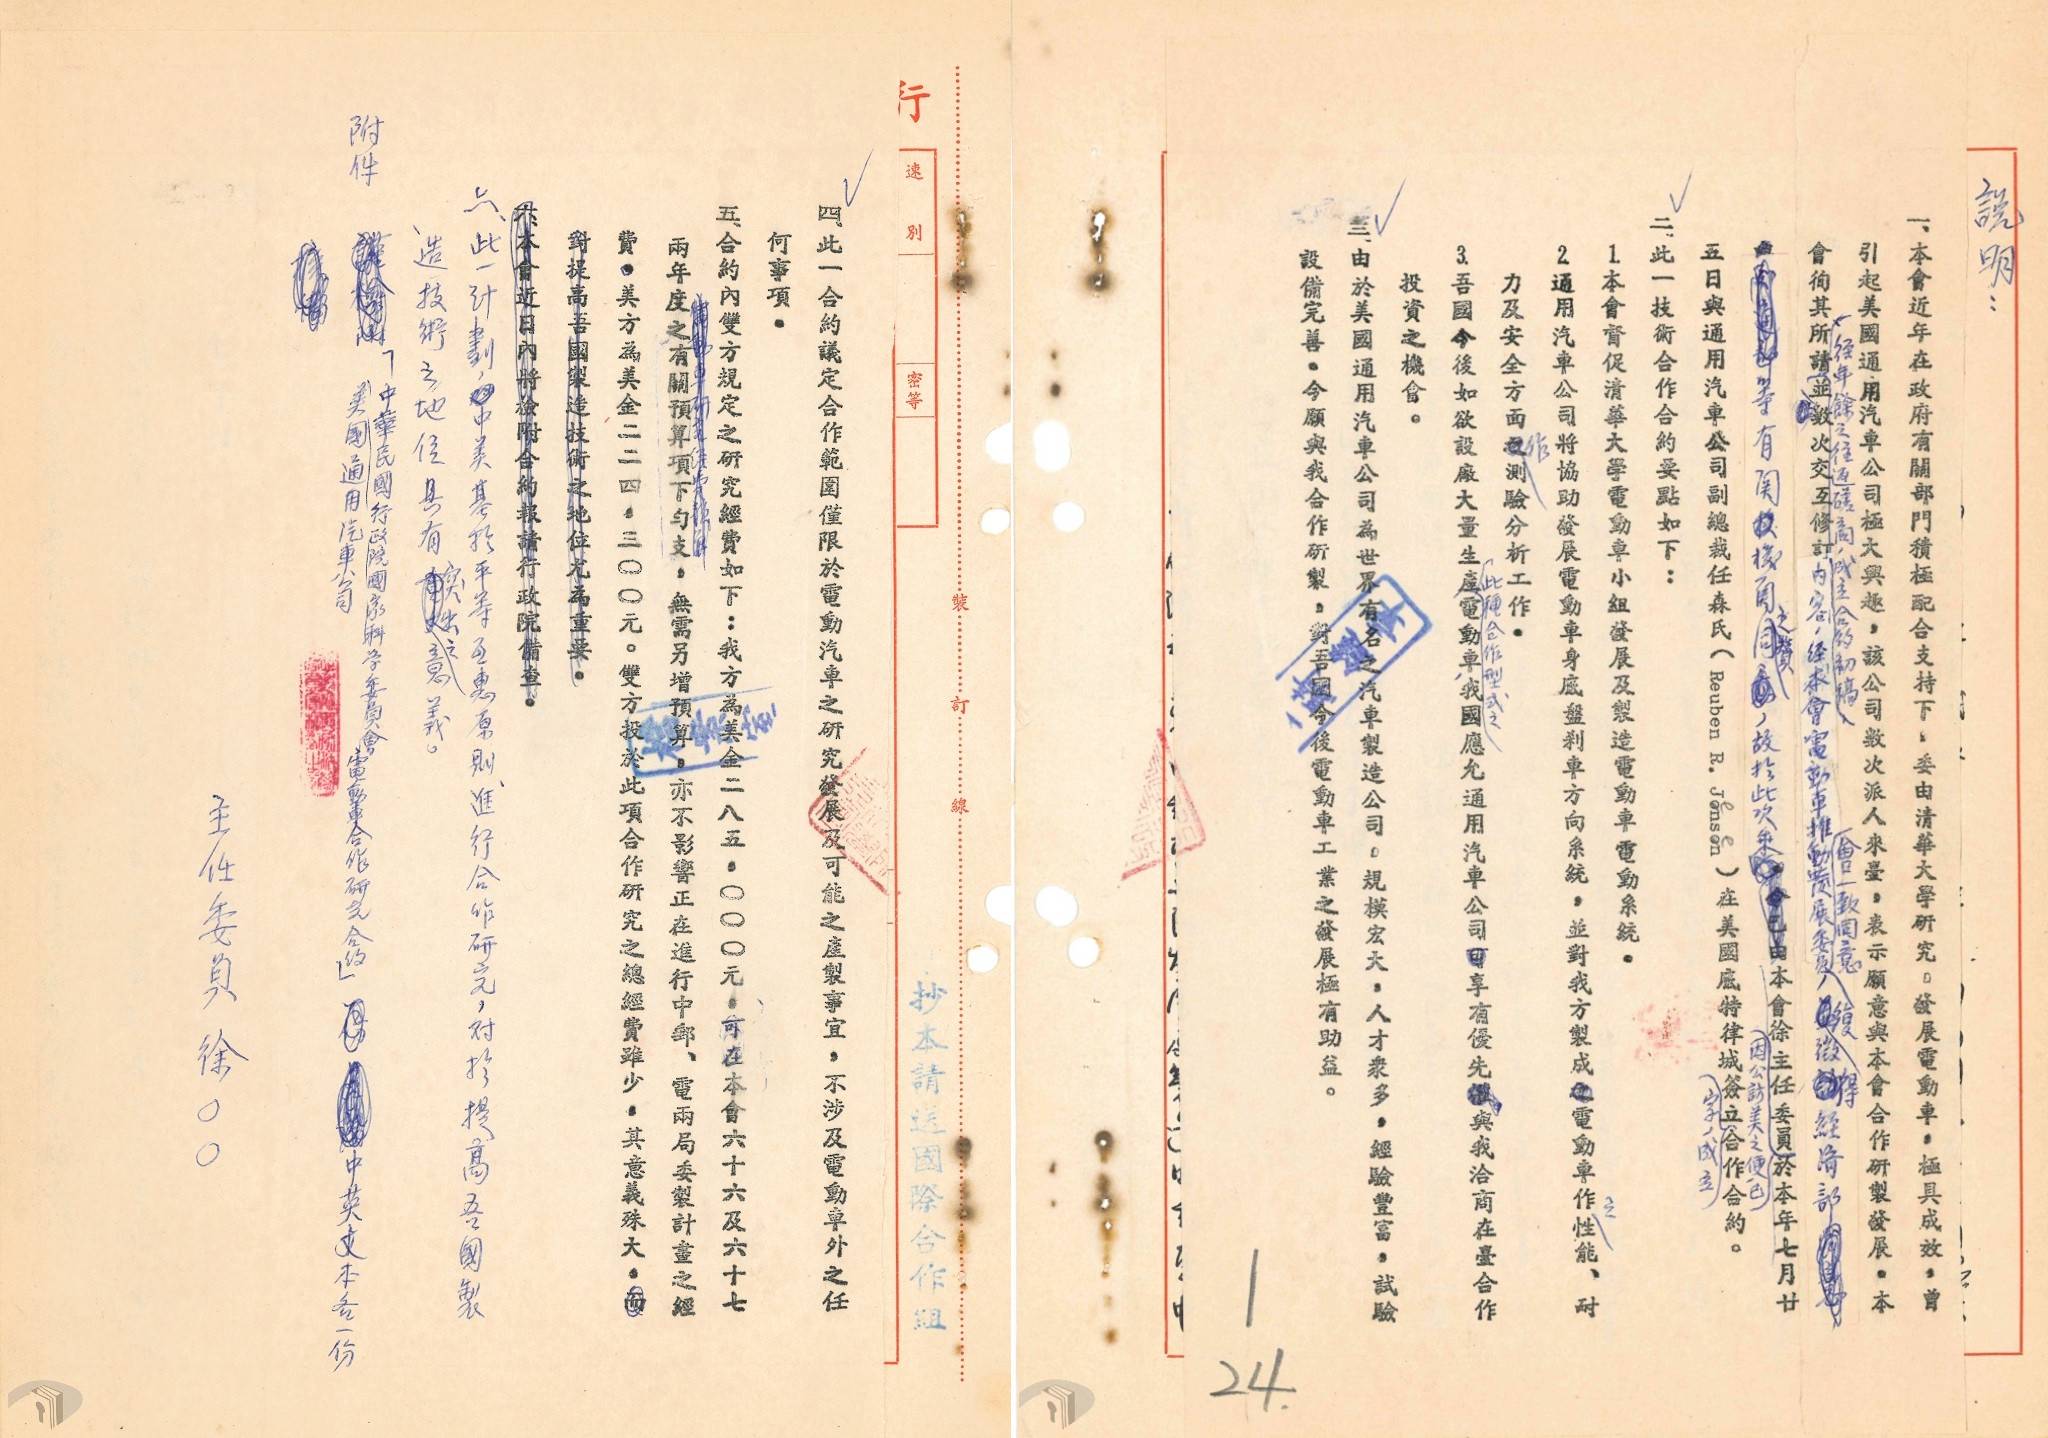 說明：
一、本會近年在政府有關部門積極配合支持下，委由清華大學研究。發展電動車，極具成效，曾
引起美國通用汽車公司極大興趣，該公司數次派人來臺，表示願意與本會合作研製發展。本
會徇其所請並數次交互修訂內容，經本會電動車推動發展委員會一致同意復徵得經濟部
經年餘之往返磋商，成立合約初稿，
等有關機關同之贊，故於此次本會徐主任委員於本年七月廿
因公訪美之便已
五日與通用汽車公司副總裁任森氏（Reuben R. Jensen）在美國底特律城簽立合作合約。
字成立
二、此一技術合作合約要點如下：
1.本會督促清華大學電動車小組發展及製造電動車電動系統。
2.通用汽車公司將協助發展電動車身底盤剎車方向系統，並對我方製成電動車作之性能、耐
力及安全方面作測驗分析工作。
3.吾國今後如欲設廠大量生產電動車我國應允通用汽車公司享有優先與我洽商在臺合作
此種合作型式之
投資之機會。
三、由於美國通用汽車公司為世界有名之汽車製造公司。規模宏大，人才衆多，經驗豐富，試驗
設備完善。今願與我合作研製，對吾國今後電動車工業之發展極有助益。
1
24.
行
速別
密等
裝訂線
抄本請送國際合作組
四、此一合約議定合作範圍僅限於電動汽車之研究發展及可能之產製事宜，不涉及電動車外之任
何事項。
五、合約內雙方規定之研究經費如下：我方為美金二八五，〇〇〇元，可在本會六十六及六十七
兩年度之有關預算項下勻支，無需另增預算，亦不影響正在進行中郵、電兩局委製計畫之經
費。美方為美金二二四，三〇〇元。雙方投於此項合作研究之總經費雖少，其意義殊大，而
對提高吾國製造技術之地位尤為重要。
六、本會近日內將檢附合約報請行政院備查。
六、此一計劃，中美基於平等互惠原則進行合作研究，對於提高吾國製
造技術之地位具有突出之意義。
附件
「中華民國行政院國家科學委員會
美國通用汽車公司
電動車合作研究合約」中英文本各一份
主任委員 徐〇〇